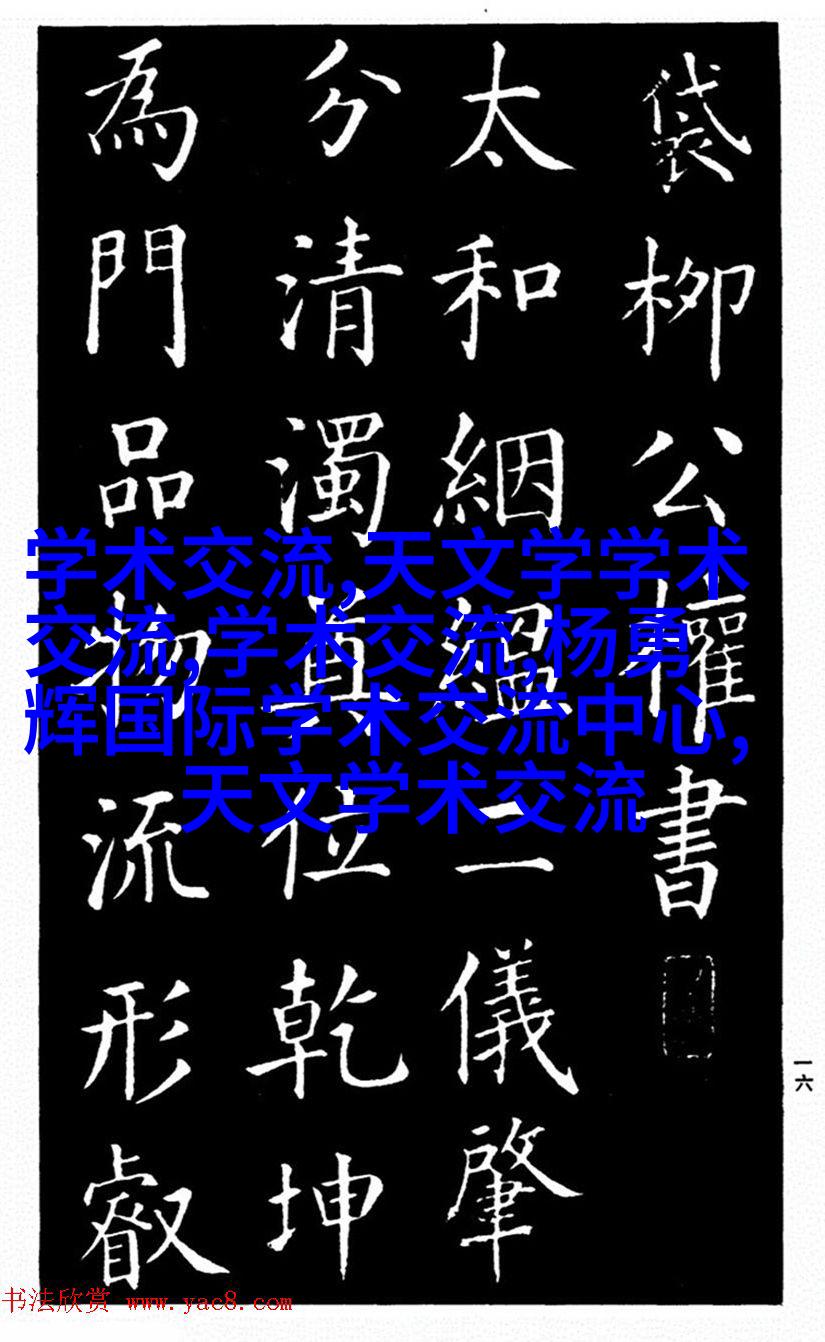 袋柳公權書
太和絪縕二儀肇
分清濁奠位乾坤
為門品物流形叡
学术交流,天文学学术
交流,学术交流,杨勇
辉国际学术交流中心,
天文学术交流
一六
书法欣赏 www.yac8.com